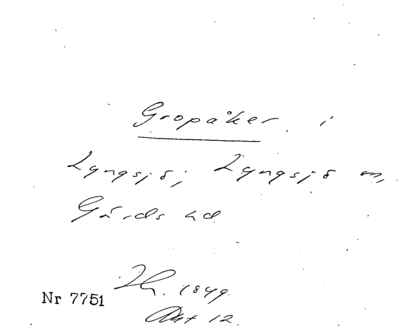 Gropåker i
Lyngsjö, Lyngsjö sn,
Gärds hd
Nr 7751
Ih. 1849.
Akt 12.